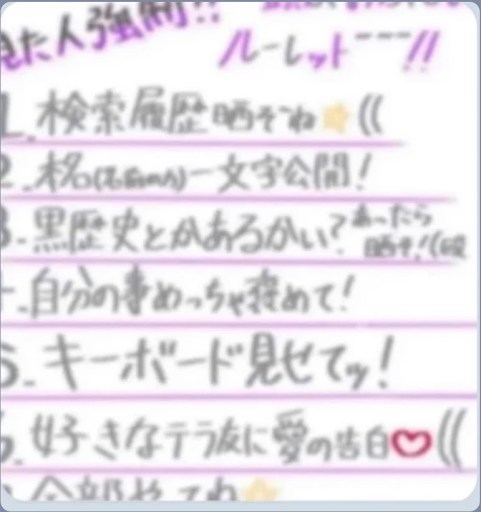 見た人強制!!
ルーレットーーー!!
1.検索履歴晒そうね((
2.本名(名前のみ)一文字公開!
3.黒歴史とかあるかい?あったら
晒せ!((殴
.自分の事めっちゃ褒めて!
5.キーボード見せてッ!
6.好きなテラ友に愛の告白♡((